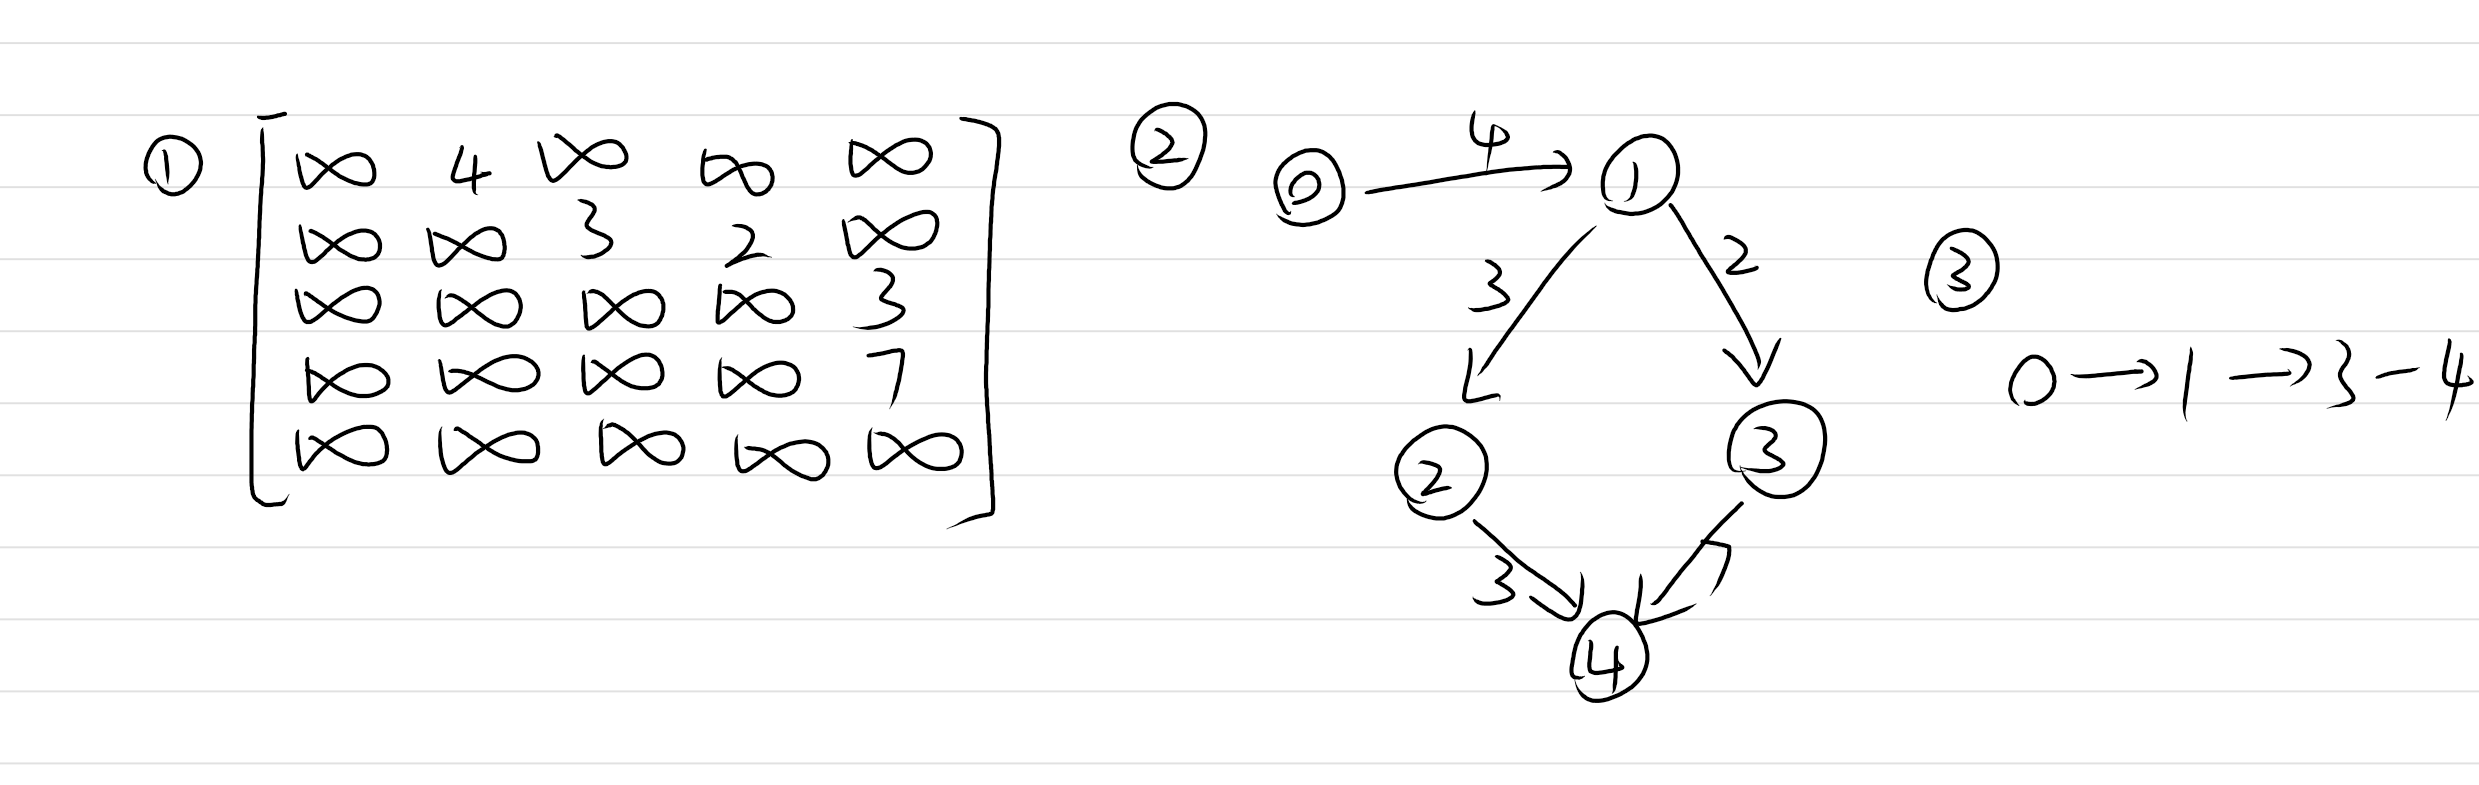 ① ∞ 4 ∞ ∞ ∞
∞ ∞ 3 2 ∞
∞ ∞ ∞ ∞ 3
∞ ∞ ∞ ∞ 7
∞ ∞ ∞ ∞ ∞
②
0 4 1
3 2
2 3
3 7
4
③
0 → 1 → 3 - 4